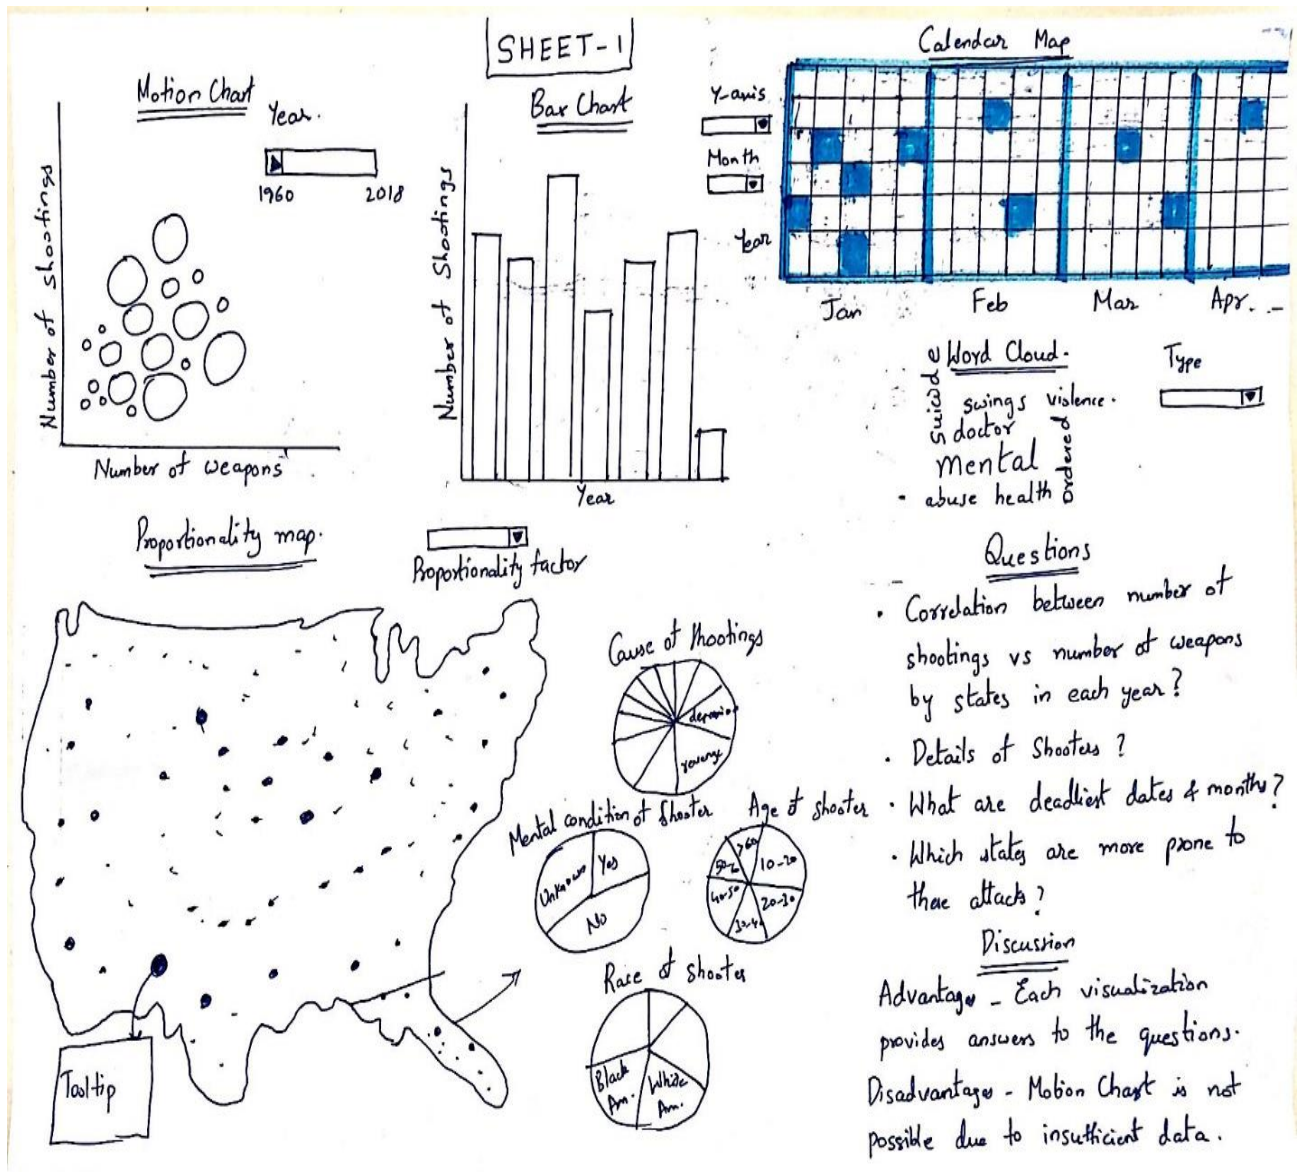 SHEET-1
Motion Chart
Year.
1960 2018
Number of Shootings
Number of weapons
Bar Chart
Number of Shootings
Year
Y-axis
Month
Year
Calendar Map
Jan Feb Mar Apr.
Word Cloud.
Type
suicide
swings violence.
doctor
mental
abuse health
ordered
Proportionality map.
Proportionality factor
Tooltip
Cause of Shootings
revenge
Mental condition of Shooter
Unknown
Yes
No
Age of shooter
>60
10-20
20-30
30-40
40-50
Race of shooter
Black
Am.
White
Am.
Questions
• Correlation between number of
shootings vs number of weapons
by states in each year?
• Details of Shooters ?
• What are deadliest dates & months?
• Which states are more prone to
these attacks ?
Discussion
Advantages - Each visualization
provides answers to the questions.
Disadvantages - Motion Chart is not
possible due to insufficient data.